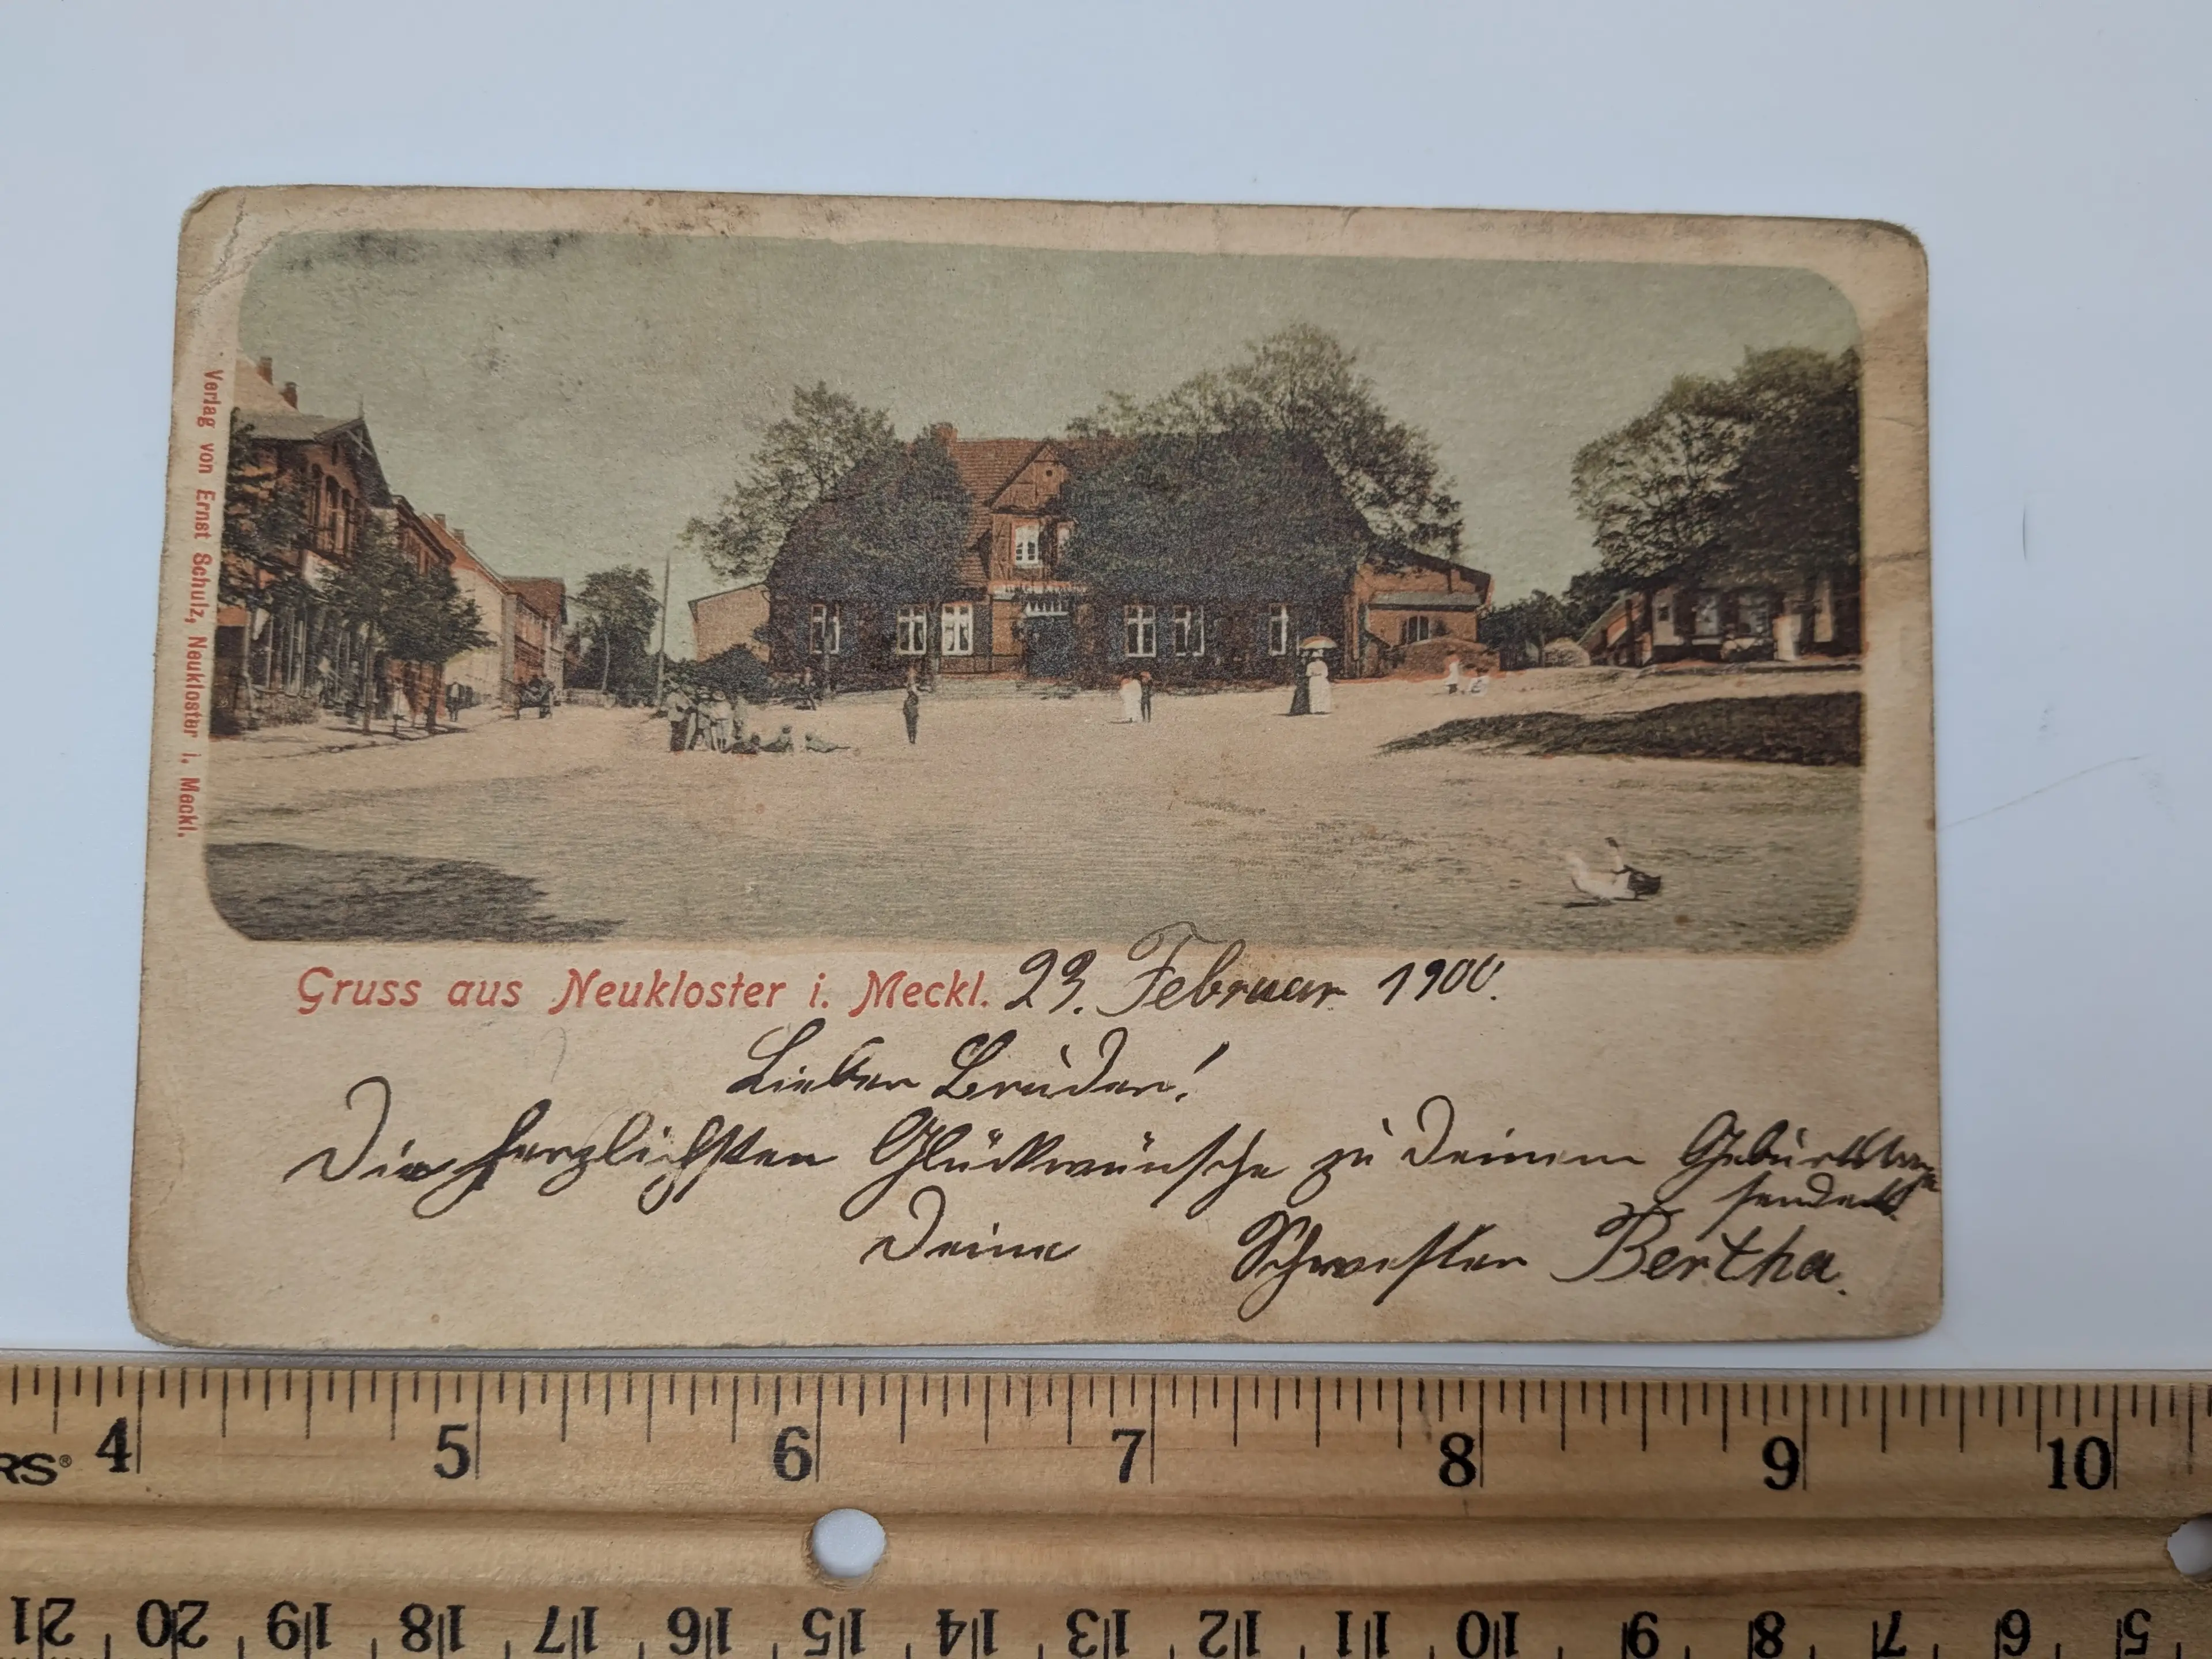 Verlag von Ernst Schulz, Neukloster i. Meckl.
Gruss aus Neukloster i. Meckl. 23. Februar 1900.
Lieber Bruder!
Die herzlichsten Glückwünsche zu Deinem Geburtstage
sendet
Deine Schwester Bertha.
RS® 4 5 6 7 8 9 10
21 20 19 18 17 16 15 14 13 12 11 10 9 8 7 6 5